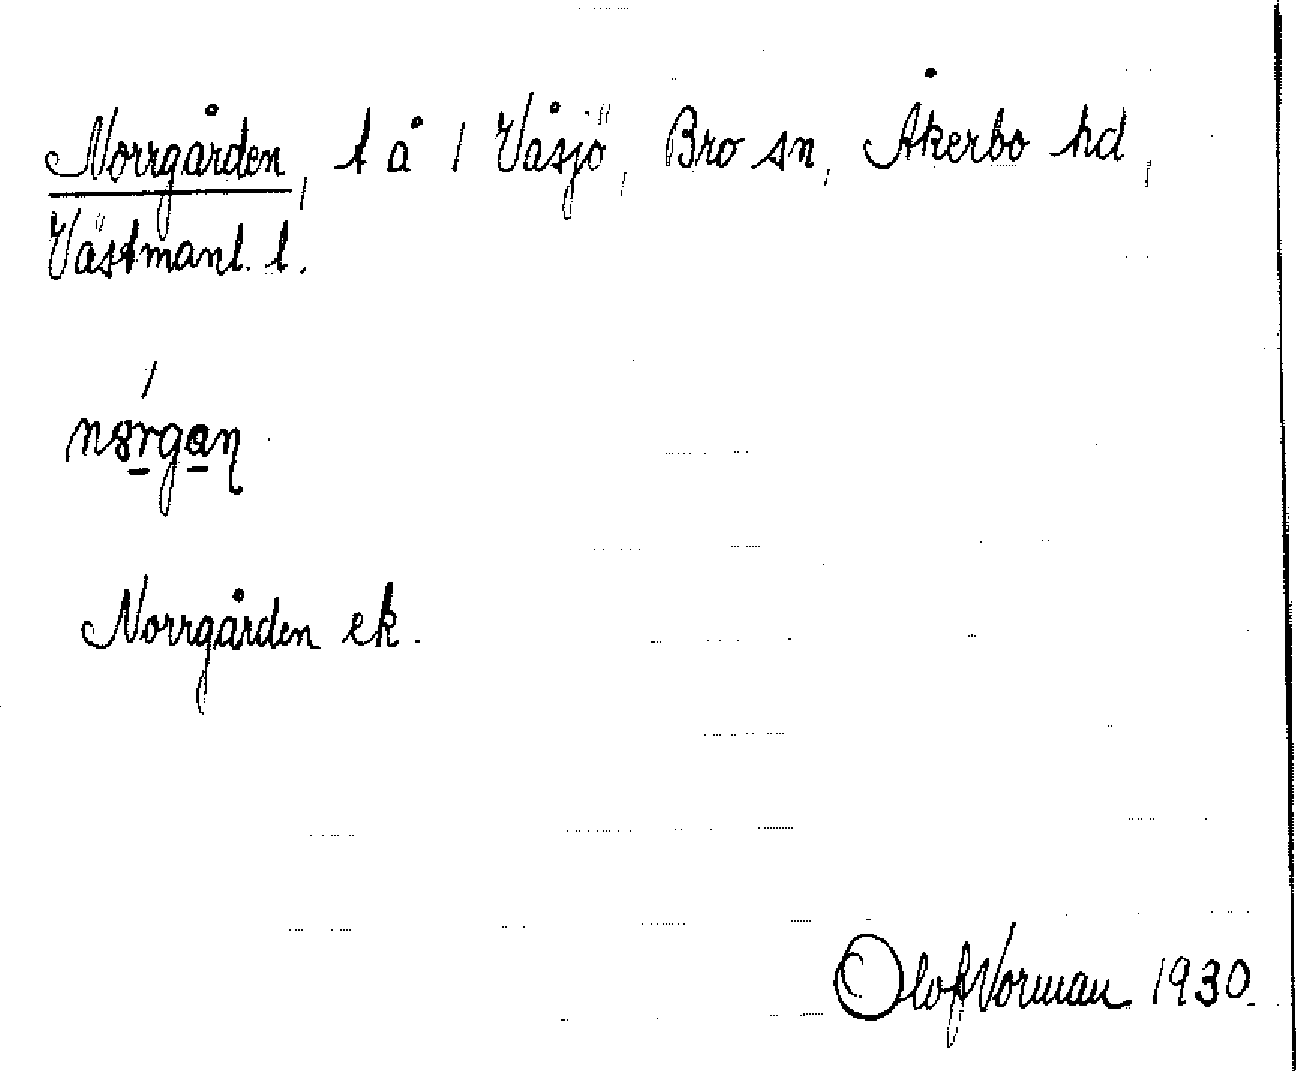 Norrgården, t å 1 Våsjö, Bro sn, Åkerbo hd,
Västmanl. l.
Norrgården ek.
Olof Norman 1930.